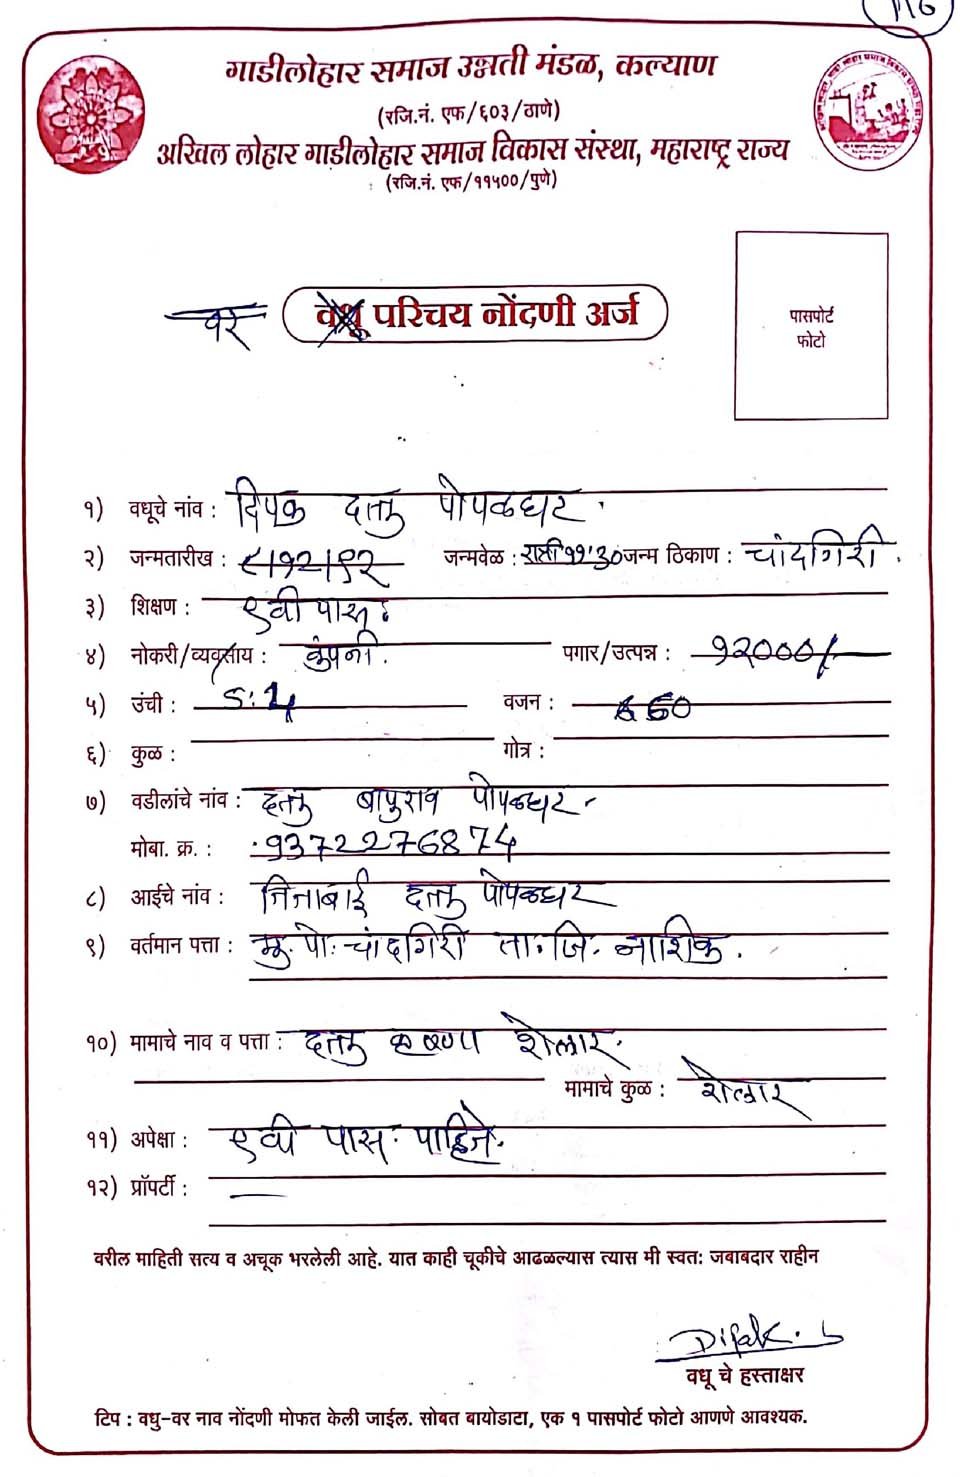 116
गाडीलोहार समाज उन्नती मंडळ, कल्याण
(रजि.नं. एफ/६०३/ठाणे)
अखिल लोहार गाडीलोहार समाज विकास संस्था, महाराष्ट्र राज्य
(रजि.नं. एफ/११५००/पुणे)
पासपोर्ट
फोटो
वर वधू परिचय नोंदणी अर्ज
१) वधूचे नांव : दिपक दत्तु पोपळघर.
२) जन्मतारीख : ८/१२/९२ जन्मवेळ : रात्री ११:३० जन्म ठिकाण : चांदगिरी.
३) शिक्षण : ९वी पास
४) नोकरी/व्यवसाय : कंपनी. पगार/उत्पन्न : १२०००/-
५) उंची : 5:4 वजन : 60
६) कुळ : गोत्र :
७) वडीलांचे नांव : दत्तु बापुराव पोपळघर
मोबा. क्र. : 9372276874
८) आईचे नांव : जिजाबाई दत्तु पोपळघर
९) वर्तमान पत्ता : मु. पो. चांदगिरी ता. जि. नाशिक.
१०) मामाचे नाव व पत्ता : दत्तु कृष्णा शेलार.
मामाचे कुळ : शेलार
११) अपेक्षा : ९वी पास. पाहिजे.
१२) प्रॉपर्टी : —
वरील माहिती सत्य व अचूक भरलेली आहे. यात काही चूकीचे आढळल्यास त्यास मी स्वतः जबाबदार राहीन
Dipak.
वधू चे हस्ताक्षर
टिप : वधु-वर नाव नोंदणी मोफत केली जाईल. सोबत बायोडाटा, एक १ पासपोर्ट फोटो आणणे आवश्यक.